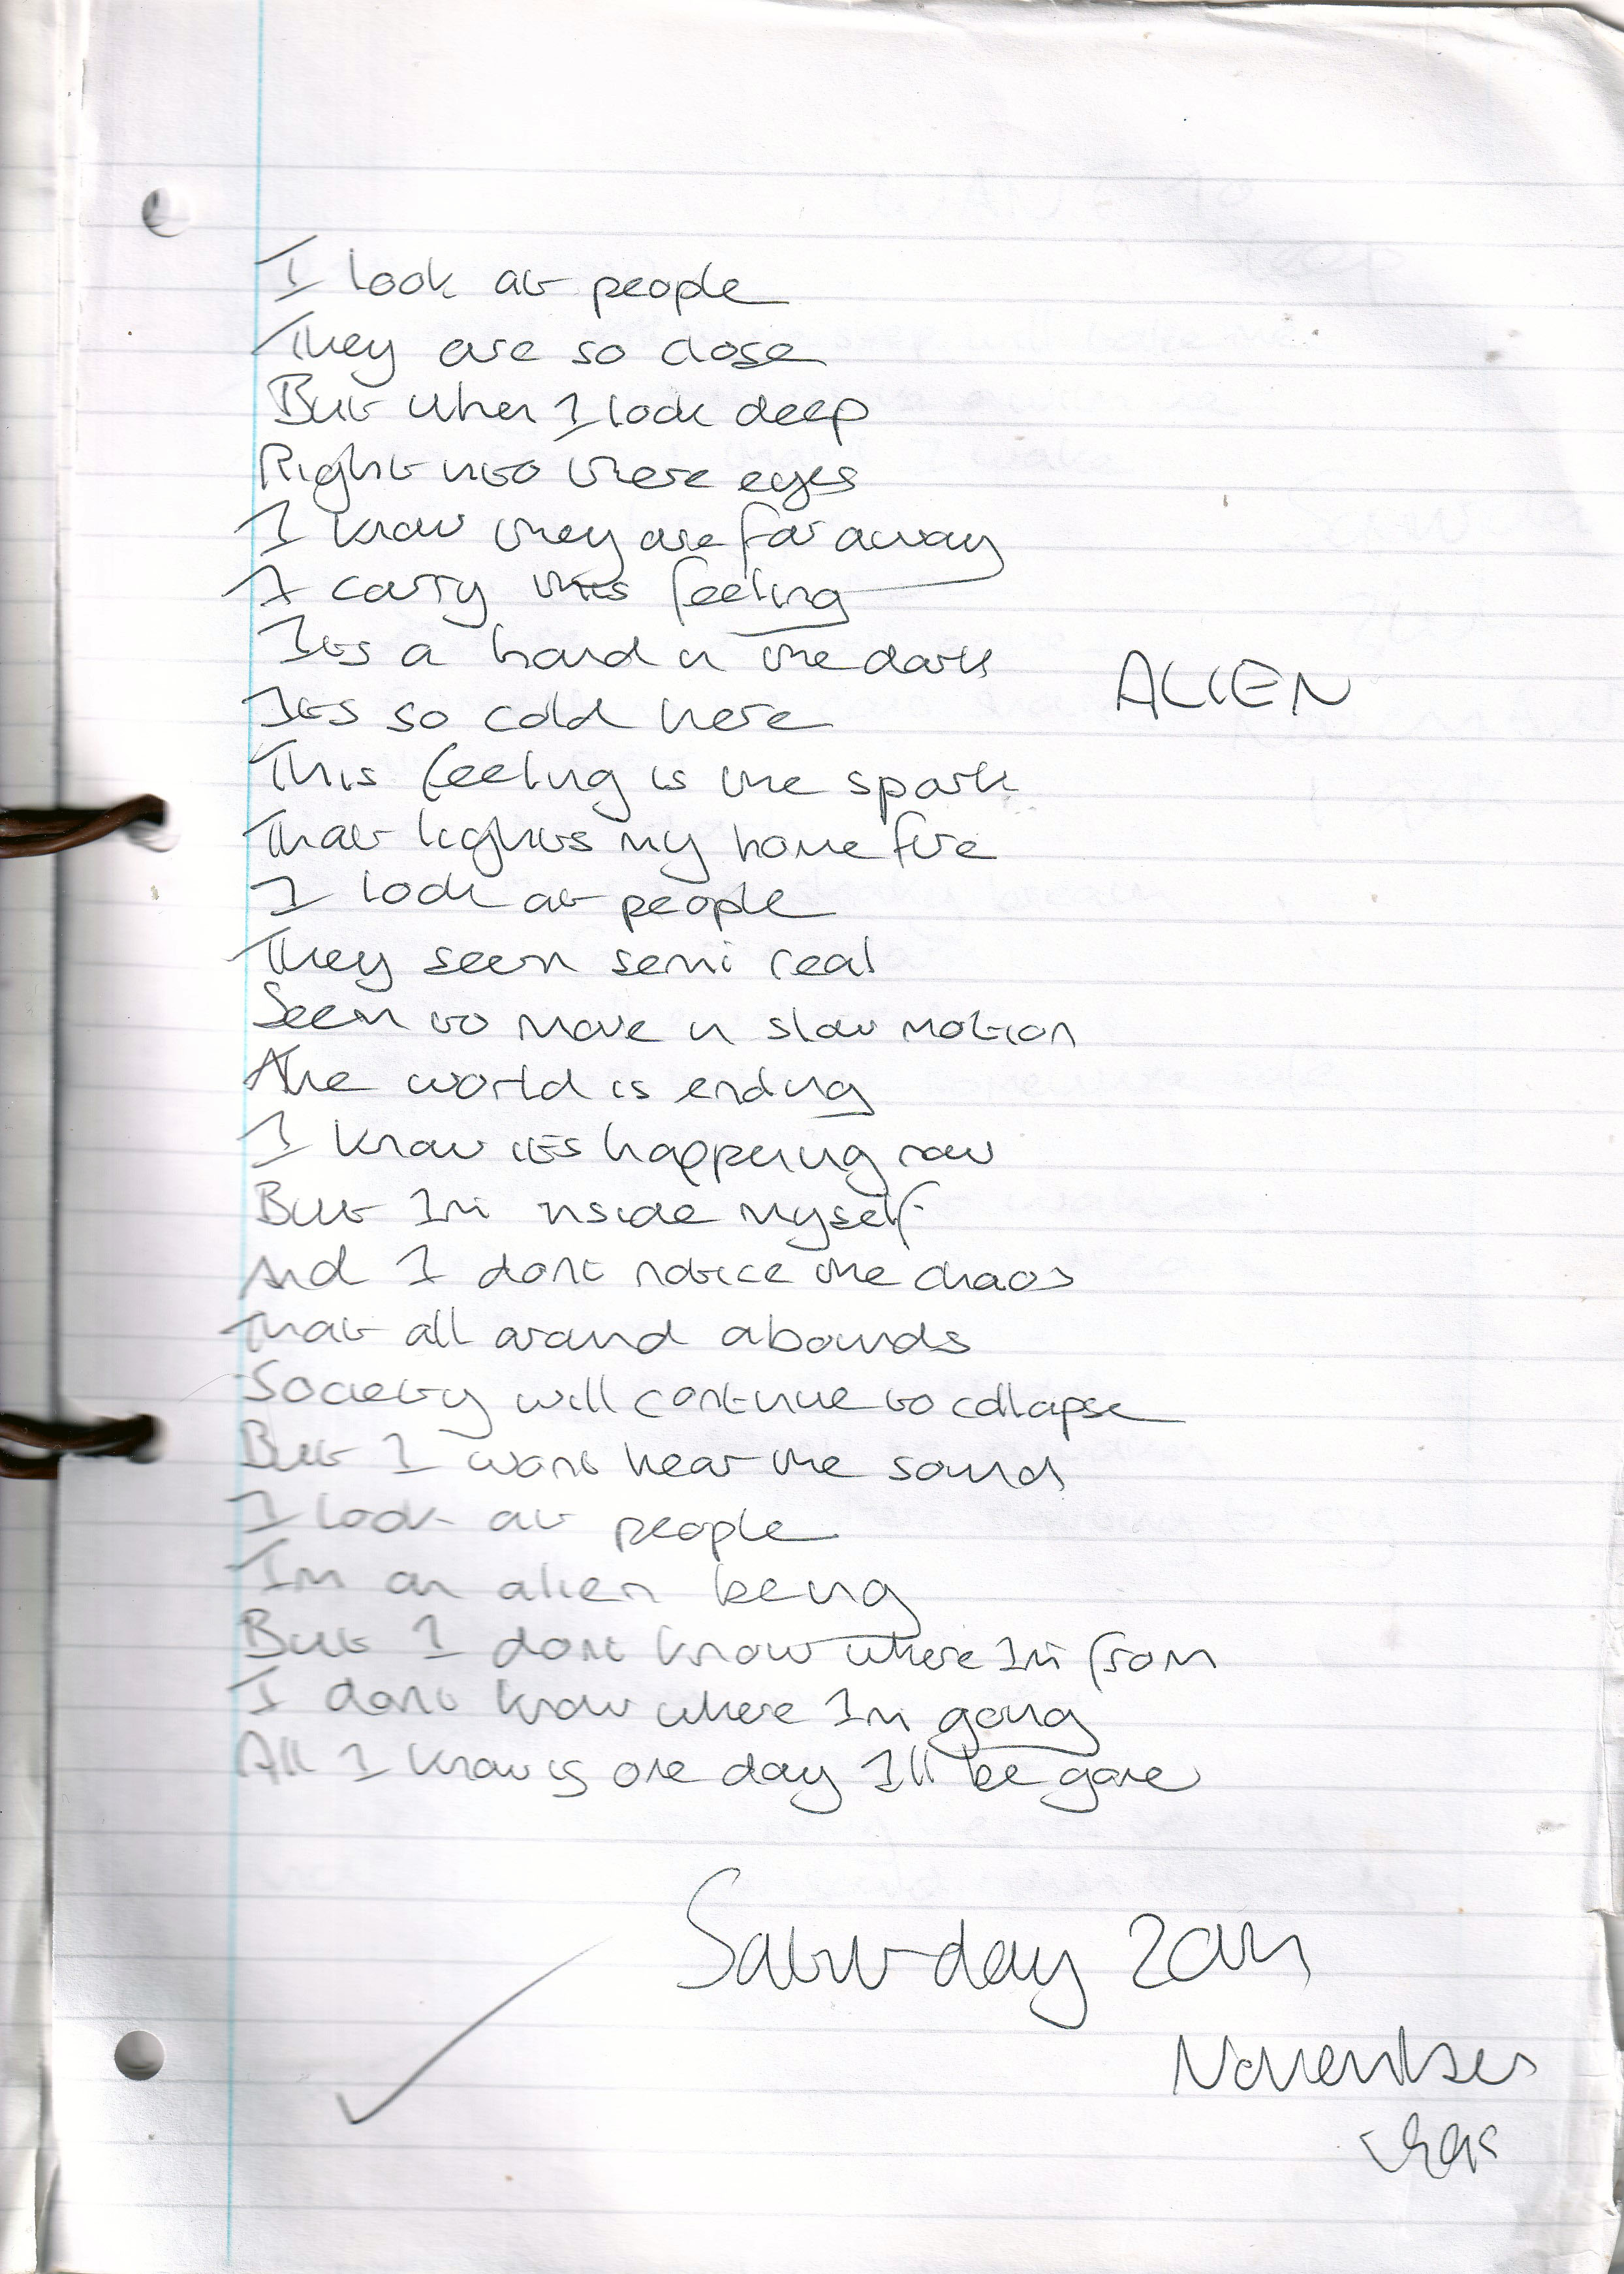 I look at people
They are so close
But when I look deep
Right into there eyes
I know they are far away
I carry this feeling
Its a hand in the dark
ALIEN
Its so cold here
This feeling is the spark
That lights my home fire
I look at people
They seem semi real
Seem to move in slow motion
The world is ending
I know its happening now
But Im inside myself
And I dont notice the chaos
That all around abounds
Society will continue to collapse
But I wont hear the sound
I look at people
Im an alien being
But I dont know where Im from
I dont know where Im going
All I know is one day Ill be gone
Saturday 2am
November